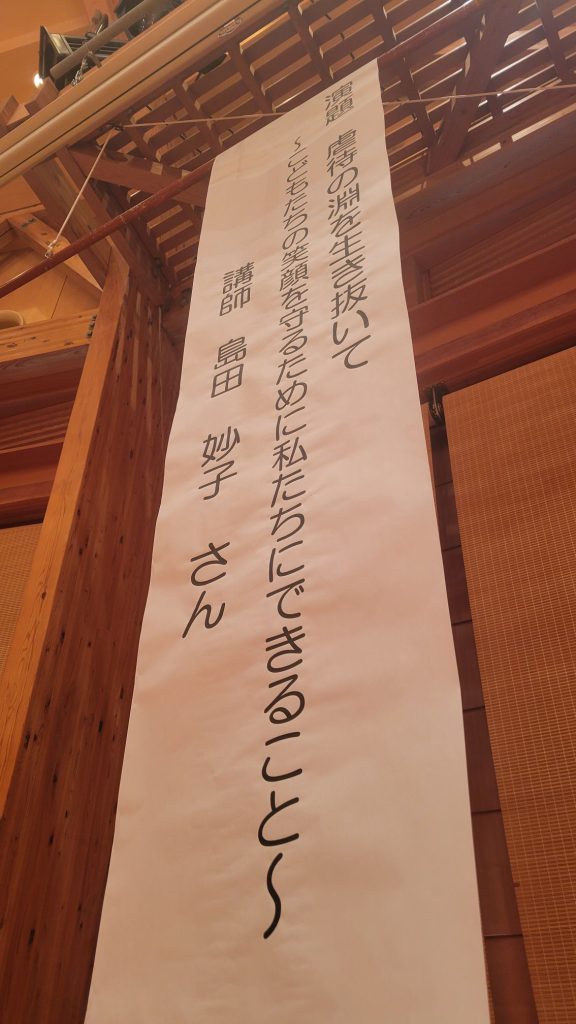 演題 虐待の淵を生き抜いて
～こどもたちの笑顔を守るために私たちにできること～
講師 島田 妙子 さん